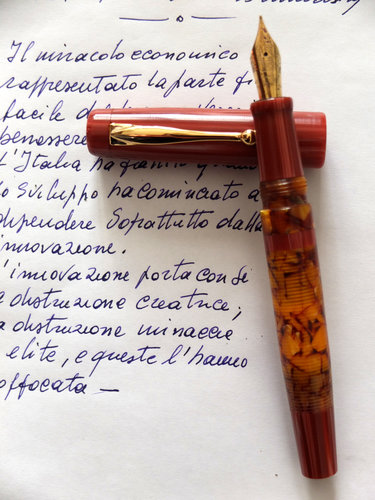 Il miracolo economico
rappresentato la parte
facile
benessere
L'Italia ha
lo sviluppo ha cominciato a
dipendere soprattutto dalla
innovazione.
L'innovazione porta con sé
la distruzione creatrice;
la distruzione minaccia
elite, e queste l'hanno
soffocata —